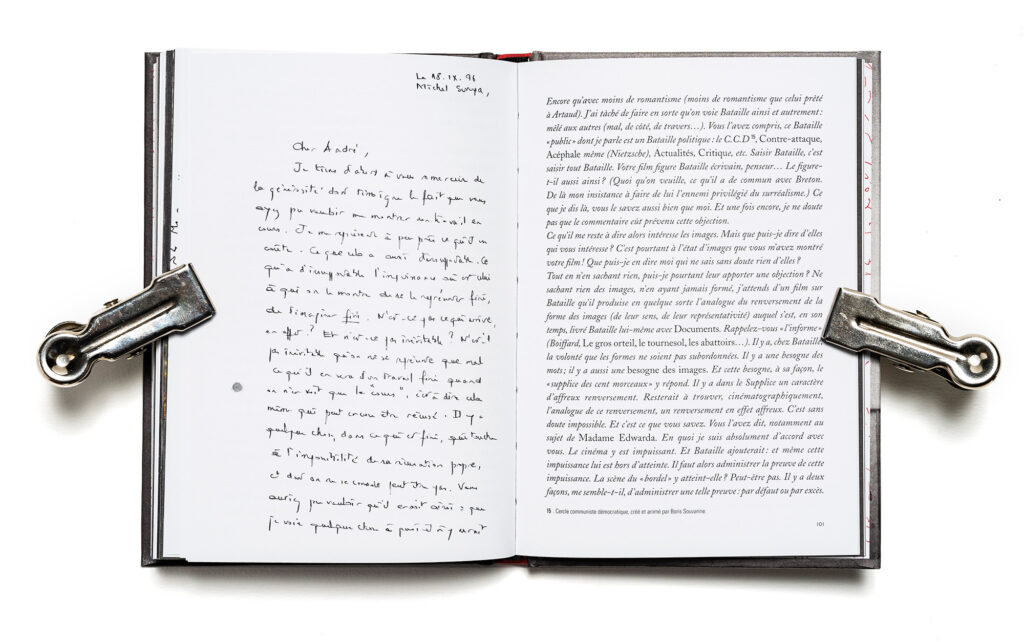 Le 18. IX. 96
Michel Surya,
Cher André,
Je tiens d'abord à vous remercier de
la générosité dont témoigne le fait que vous
ayez pu vouloir me montrer un travail en
cours. Je me représente à peu près ce qu'il en
coûte. Ce que cela a aussi d'insupportable. Ce
qu'a d'insupportable l'impuissance où est celui
à qui on le montre de se le représenter fini,
de l'imaginer fini. N'est-ce pas ce qui arrive,
en effet ? Et n'est-ce pas inévitable ? N'est-il
pas inévitable qu'on ne se représente que mal
ce qu'il en sera d'un travail fini quand
on n'en voit que le "cours", c'est-à-dire cela
même qui peut encore être récusé. Il y a
quelque chose, dans ce qui est fini, qui touche
à l'impossibilité de sa récusation propre,
et dont on ne se console peut-être pas. Vous
auriez pu vouloir qu'il en soit ainsi ; que
je voie quelque chose à quoi il n'y aurait
Encore qu'avec moins de romantisme (moins de romantisme que celui prêté
à Artaud). J'ai tâché de faire en sorte qu'on voie Bataille ainsi et autrement :
mêlé aux autres (mal, de côté, de travers…). Vous l'avez compris, ce Bataille
« public » dont je parle est un Bataille politique : le C.C.D 15, Contre-attaque,
Acéphale même (Nietzsche), Actualités, Critique, etc. Saisir Bataille, c'est
saisir tout Bataille. Votre film figure Bataille écrivain, penseur… Le figure-
t-il aussi ainsi ? (Quoi qu'on veuille, ce qu'il a de commun avec Breton.
De là mon insistance à faire de lui l'ennemi privilégié du surréalisme.) Ce
que je dis là, vous le savez aussi bien que moi. Et une fois encore, je ne doute
pas que le commentaire eût prévenu cette objection.
Ce qu'il me reste à dire alors intéresse les images. Mais que puis-je dire d'elles
qui vous intéresse ? C'est pourtant à l'état d'images que vous m'avez montré
votre film ! Que puis-je en dire moi qui ne sais sans doute rien d'elles ?
Tout en n'en sachant rien, puis-je pourtant leur apporter une objection ? Ne
sachant rien des images, n'en ayant jamais formé, j'attends d'un film sur
Bataille qu'il produise en quelque sorte l'analogue du renversement de la
forme des images (de leur sens, de leur représentativité) auquel s'est, en son
temps, livré Bataille lui-même avec Documents. Rappelez-vous « l'informe »
(Boiffard, Le gros orteil, le tournesol, les abattoirs…). Il y a, chez Bataille
la volonté que les formes ne soient pas subordonnées. Il y a une besogne des
mots ; il y a aussi une besogne des images. Et cette besogne, à sa façon, le
« supplice des cent morceaux » y répond. Il y a dans le Supplice un caractère
d'affreux renversement. Resterait à trouver, cinématographiquement,
l'analogue de ce renversement, un renversement en effet affreux. C'est sans
doute impossible. Et c'est ce que vous savez. Vous l'avez dit, notamment au
sujet de Madame Edwarda. En quoi je suis absolument d'accord avec
vous. Le cinéma y est impuissant. Et Bataille ajouterait : et même cette
impuissance lui est hors d'atteinte. Il faut alors administrer la preuve de cette
impuissance. La scène du « bordel » y atteint-elle ? Peut-être pas. Il y a deux
façons, me semble-t-il, d'administrer une telle preuve : par défaut ou par excès.
15 . Cercle communiste démocratique, créé et animé par Boris Souvarine.
101